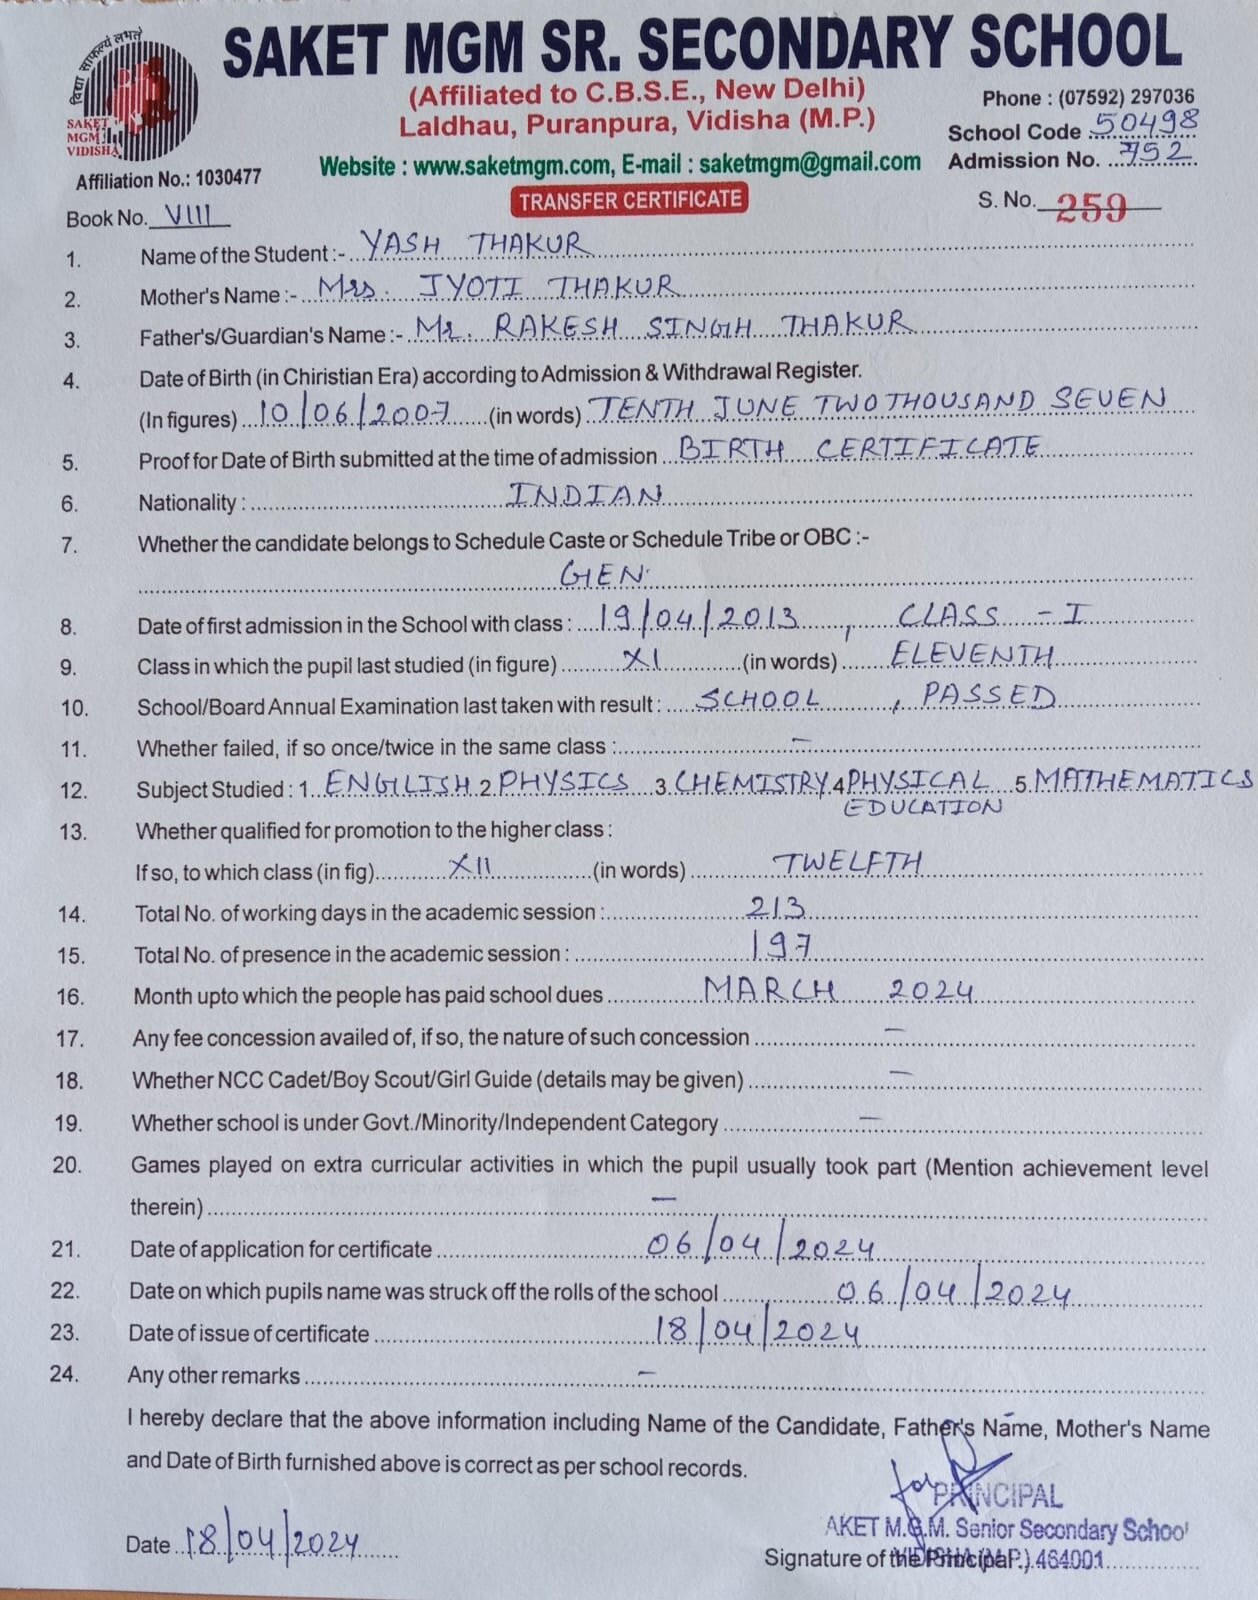 विद्या साफल्यं लभते
SAKET
MGM
VIDISHA
SAKET MGM SR. SECONDARY SCHOOL
(Affiliated to C.B.S.E., New Delhi)
Laldhau, Puranpura, Vidisha (M.P.)
Phone : (07592) 297036
School Code 50498
Website : www.saketmgm.com, E-mail : saketmgm@gmail.com
Admission No. 752
Affiliation No.: 1030477
TRANSFER CERTIFICATE
Book No. VIII
S. No. 259
1. Name of the Student :- YASH THAKUR
2. Mother's Name :- Mrs. JYOTI THAKUR
3. Father's/Guardian's Name :- Mr. RAKESH SINGH THAKUR
4. Date of Birth (in Chiristian Era) according to Admission & Withdrawal Register.
(In figures) 10/06/2007 (in words) TENTH JUNE TWO THOUSAND SEVEN
5. Proof for Date of Birth submitted at the time of admission BIRTH CERTIFICATE
6. Nationality : INDIAN
7. Whether the candidate belongs to Schedule Caste or Schedule Tribe or OBC :-
GEN.
8. Date of first admission in the School with class : 19/04/2013, CLASS - I
9. Class in which the pupil last studied (in figure) XI (in words) ELEVENTH
10. School/Board Annual Examination last taken with result : SCHOOL, PASSED
11. Whether failed, if so once/twice in the same class : -
12. Subject Studied : 1. ENGLISH 2. PHYSICS 3. CHEMISTRY 4. PHYSICAL 5. MATHEMATICS
EDUCATION
13. Whether qualified for promotion to the higher class :
If so, to which class (in fig) XII (in words) TWELFTH
14. Total No. of working days in the academic session : 213
15. Total No. of presence in the academic session : 197
16. Month upto which the people has paid school dues MARCH 2024
17. Any fee concession availed of, if so, the nature of such concession -
18. Whether NCC Cadet/Boy Scout/Girl Guide (details may be given) -
19. Whether school is under Govt./Minority/Independent Category -
20. Games played on extra curricular activities in which the pupil usually took part (Mention achievement level
therein) -
21. Date of application for certificate 06/04/2024
22. Date on which pupils name was struck off the rolls of the school 06/04/2024
23. Date of issue of certificate 18/04/2024
24. Any other remarks -
I hereby declare that the above information including Name of the Candidate, Father's Name, Mother's Name
and Date of Birth furnished above is correct as per school records.
for
PRINCIPAL
AKET M.G.M. Senior Secondary School
Date 18/04/2024
Signature of the Principal
VIDISHA (M.P.) 464001